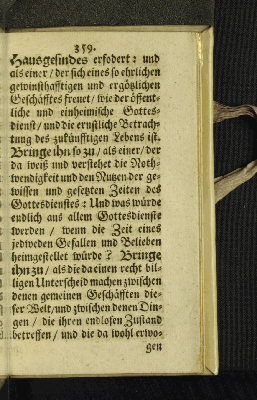 359.
Hausgesindes erfodert: und
als einer / der sich eines so ehrlichen
gewinsthafftigen und ergötzlichen
Geschäfftes freuet / wie der öffent-
liche und einheimische Gottes-
dienst / und die ernstliche Betrach-
tung des zukünfftigen Lebens ist.
Bringe ihn so zu / als einer / der
da weiß und verstehet die Noth-
wendigkeit und den Nutzen der ge-
wissen und gesetzten Zeiten des
Gottesdienstes: Und was würde
endlich aus allem Gottesdienste
werden / wenn die Zeit eines
jedweden Gefallen und Belieben
heimgestellet würde? Bringe
ihn zu / als die da einen recht bil-
ligen Unterscheid machen zwischen
denen gemeinen Geschäfften die-
ser Welt / und zwischen denen Din-
gen / die ihren endlosen Zustand
betreffen / und die da wohl erwo-
gen